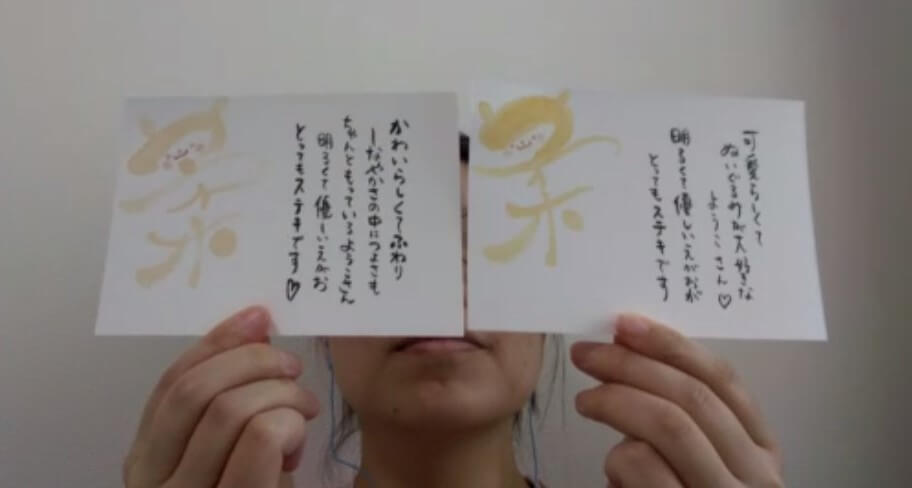 柔
かわいらしくてふわり
しなやかさの中につよさも
ちゃんともっているようこさん
明るくて優しいえがお
とってもステキです♡
柔
可愛らしくて
ぬいぐるみが大好きな
ようこさん♡
明るくて優しいえがおが
とってもステキです